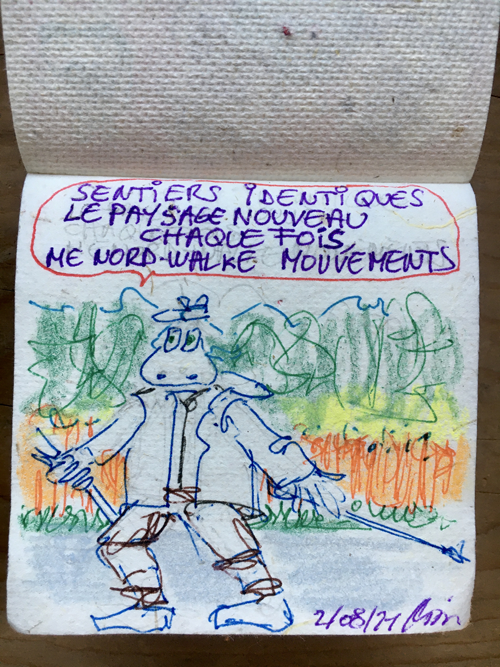 SENTIERS IDENTIQUES
LE PAYSAGE NOUVEAU
CHAQUE FOIS,
ME NORD-WALKE MOUVEMENTS
2/08/21